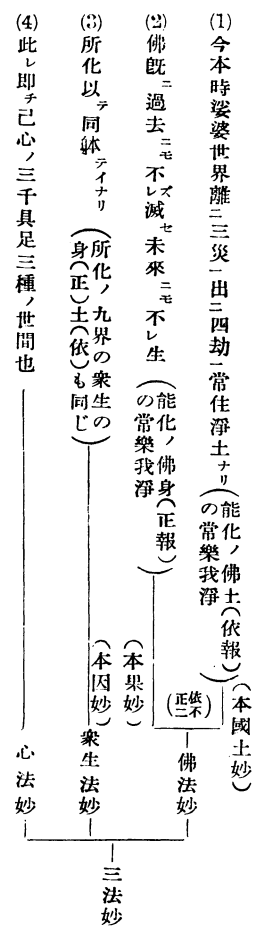 (1) 今本時娑婆世界離ニ三災一出ニ四劫一常住淨土ナリ(能化ノ佛土(依報)の常樂我淨)(本國土妙)
(2) 佛既ニ過去ニモ不レズ滅セ未來ニモ不レ生(能化ノ佛身(正報)の常樂我淨)(本果妙)
(依正不二)
佛法妙
(3) 所化以テ同躰テイナリ(所化ノ九界の衆生の身(正)土(依)も同じ)(本因妙)
衆生法妙
(4) 此レ即チ己心ノ三千具足三種ノ世間也
心法妙
三法妙